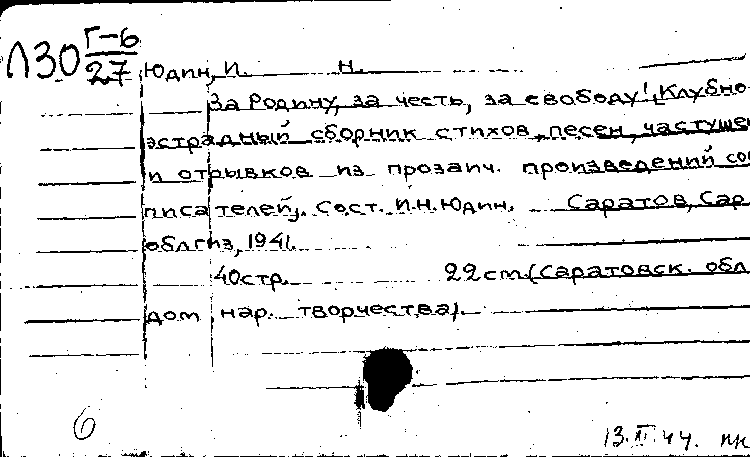 Л30 Г-6/27
Юдин, И. Н.
За Родину, за честь, за свободу! [Клубно-
эстрадный сборник стихов, песен, частушек
и отрывков из прозаич. произведений сов
писателей]. Сост. И.Н. Юдин. Саратов, Сар
облгиз, 1941.
40 стр. 22 см. (Саратовск. обл
дом нар. творчества).
6
13.III.44. пк